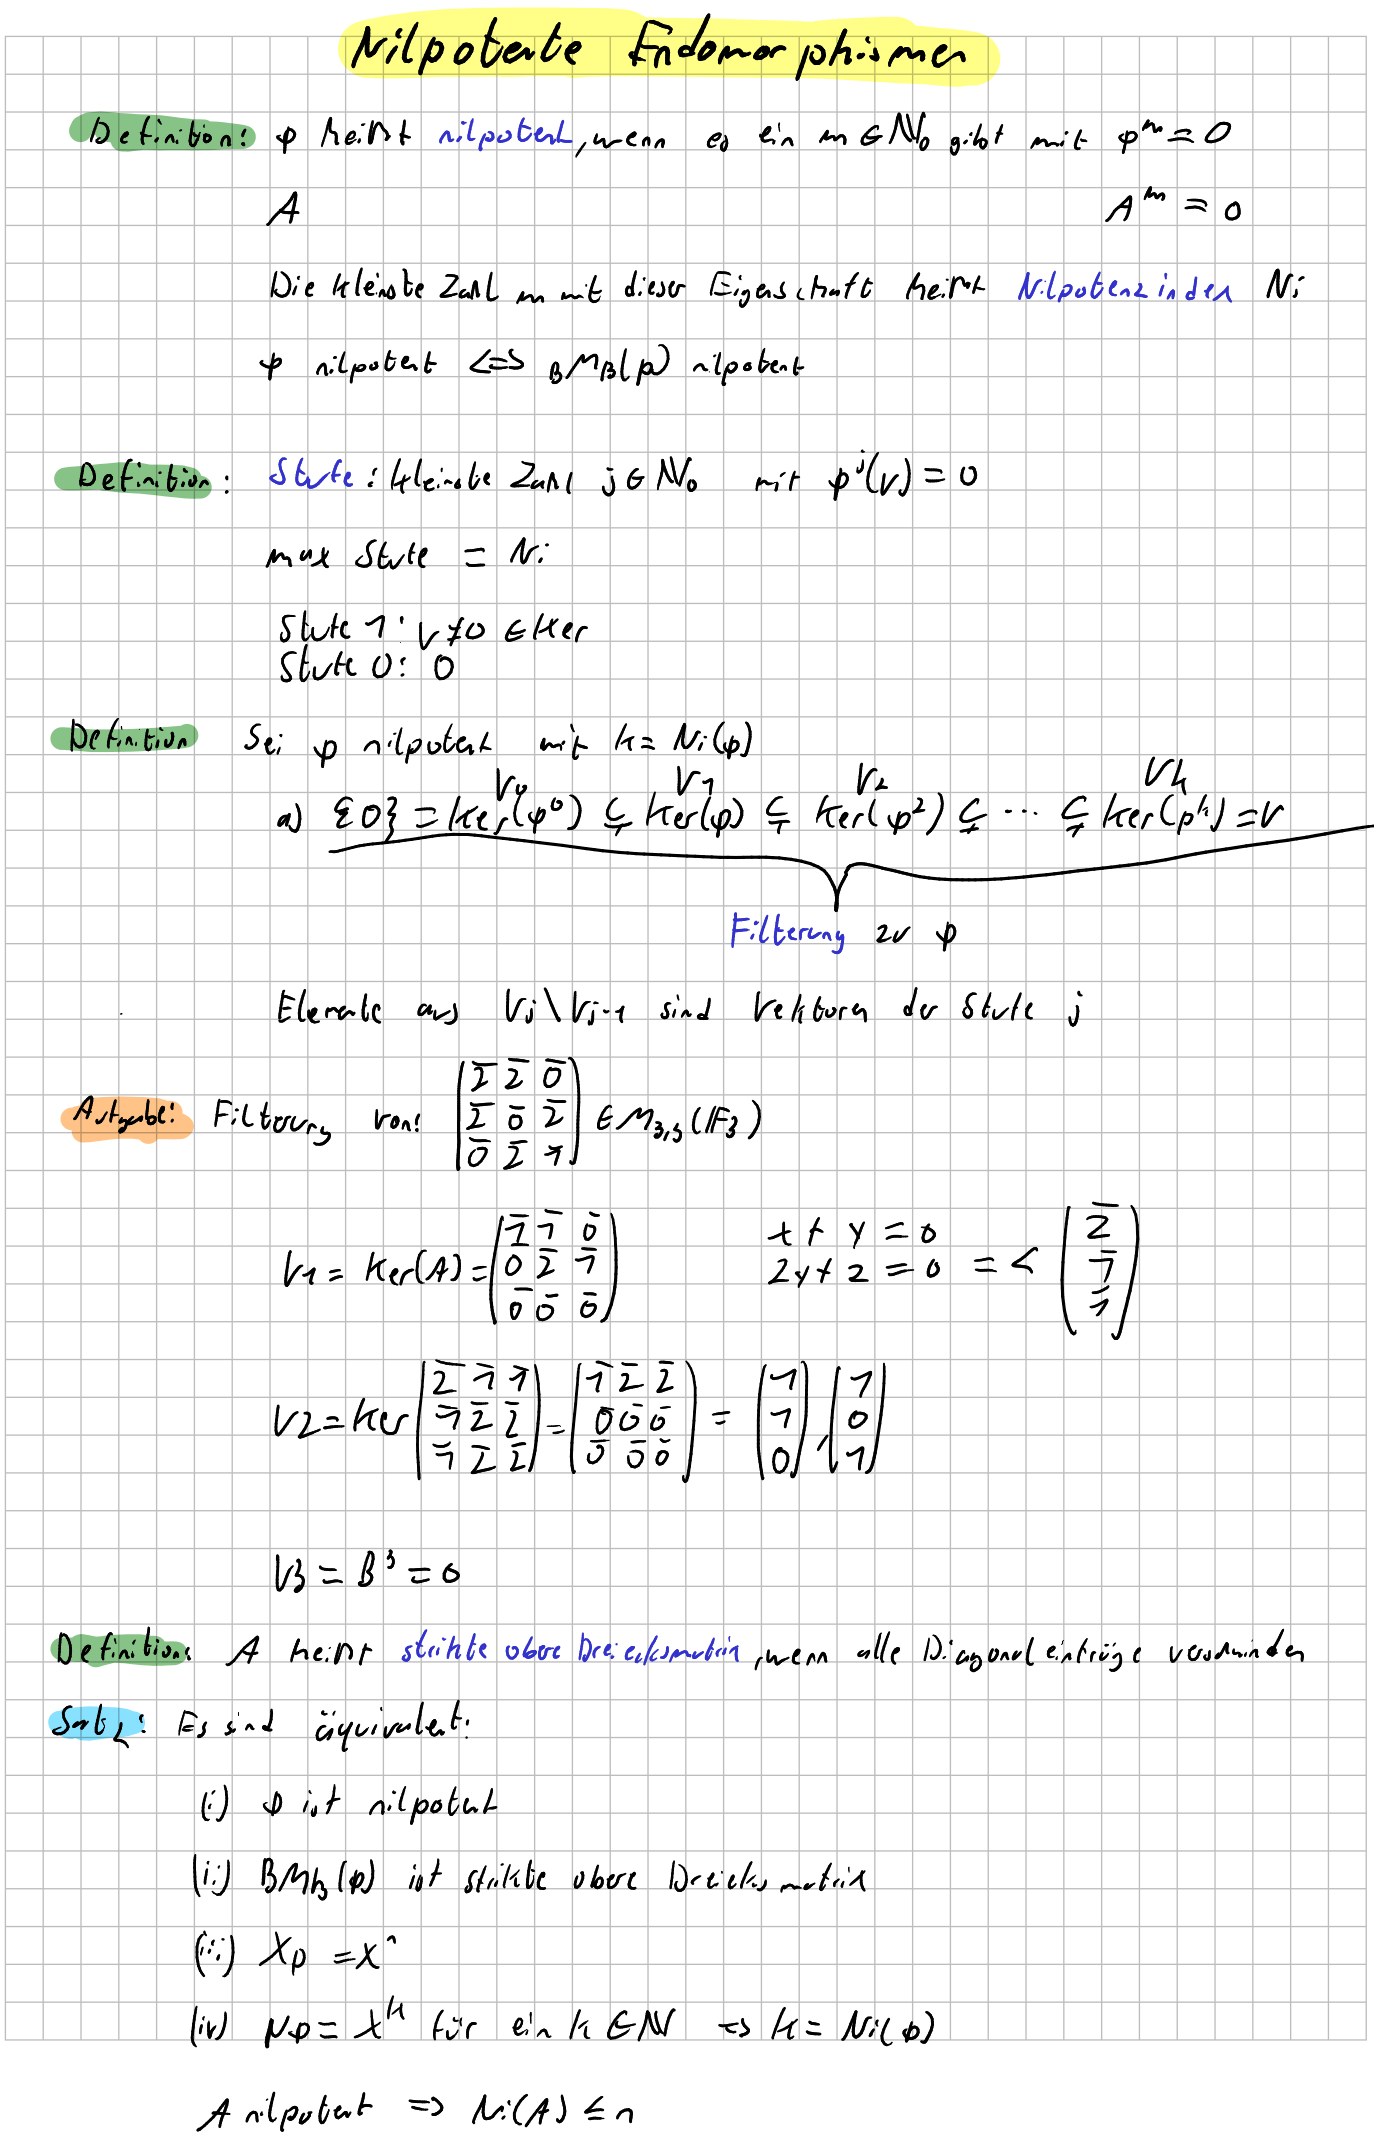 Nilpotente Endomorphismen
Definition: φ heißt nilpotent, wenn es ein m ∈ ℕ₀ gibt mit φᵐ = 0
A Aᵐ = 0
Die kleinste Zahl m mit dieser Eigenschaft heißt Nilpotenzindex Ni
φ nilpotent <=> BMB(φ) nilpotent
Definition: Stufe: kleinste Zahl j ∈ ℕ₀ mit φʲ(v) = 0
max Stufe = Ni
Stufe 1: v ≠ 0 ∈ Ker
Stufe 0: 0
Definition Sei φ nilpotent mit k = Ni(φ)
V₀ V₁ V₂ Vk
a) {0} = Ker(φ⁰) ⊊ Ker(φ) ⊊ Ker(φ²) ⊊ ... ⊊ Ker(φᵏ) = V
Filterung zu φ
Elemente aus Vj \ Vj-1 sind Vektoren der Stufe j
Aufgabe: Filterung von: (2̄ 2̄ 0̄ / 2̄ 0̄ 2̄ / 0̄ 2̄ 1̄) ∈ M₃,₃(𝔽₃)
V1 = Ker(A) = (1̄ 1̄ 0̄ / 0 2̄ 1̄ / 0̄ 0̄ 0̄) x + y = 0
2y + z = 0 = < (2̄ / 1̄ / 1̄)
V2 = Ker (2̄ 1̄ 1̄ / 1̄ 2̄ 2̄ / 1̄ 2̄ 2̄) = (1̄ 2̄ 2̄ / 0̄ 0̄ 0̄ / 0̄ 0̄ 0̄) = (1 / 1 / 0), (1 / 0 / 1)
V3 = B³ = 0
Definition: A heißt strikte obere Dreiecksmatrix, wenn alle Diagonaleinträge verschwinden
Satz: Es sind äquivalent:
(i) φ ist nilpotent
(ii) BMB(φ) ist strikte obere Dreiecksmatrix
(iii) Xφ = Xⁿ
(iv) μφ = Xᵏ für ein k ∈ ℕ => k = Ni(φ)
A nilpotent => Ni(A) ≤ n